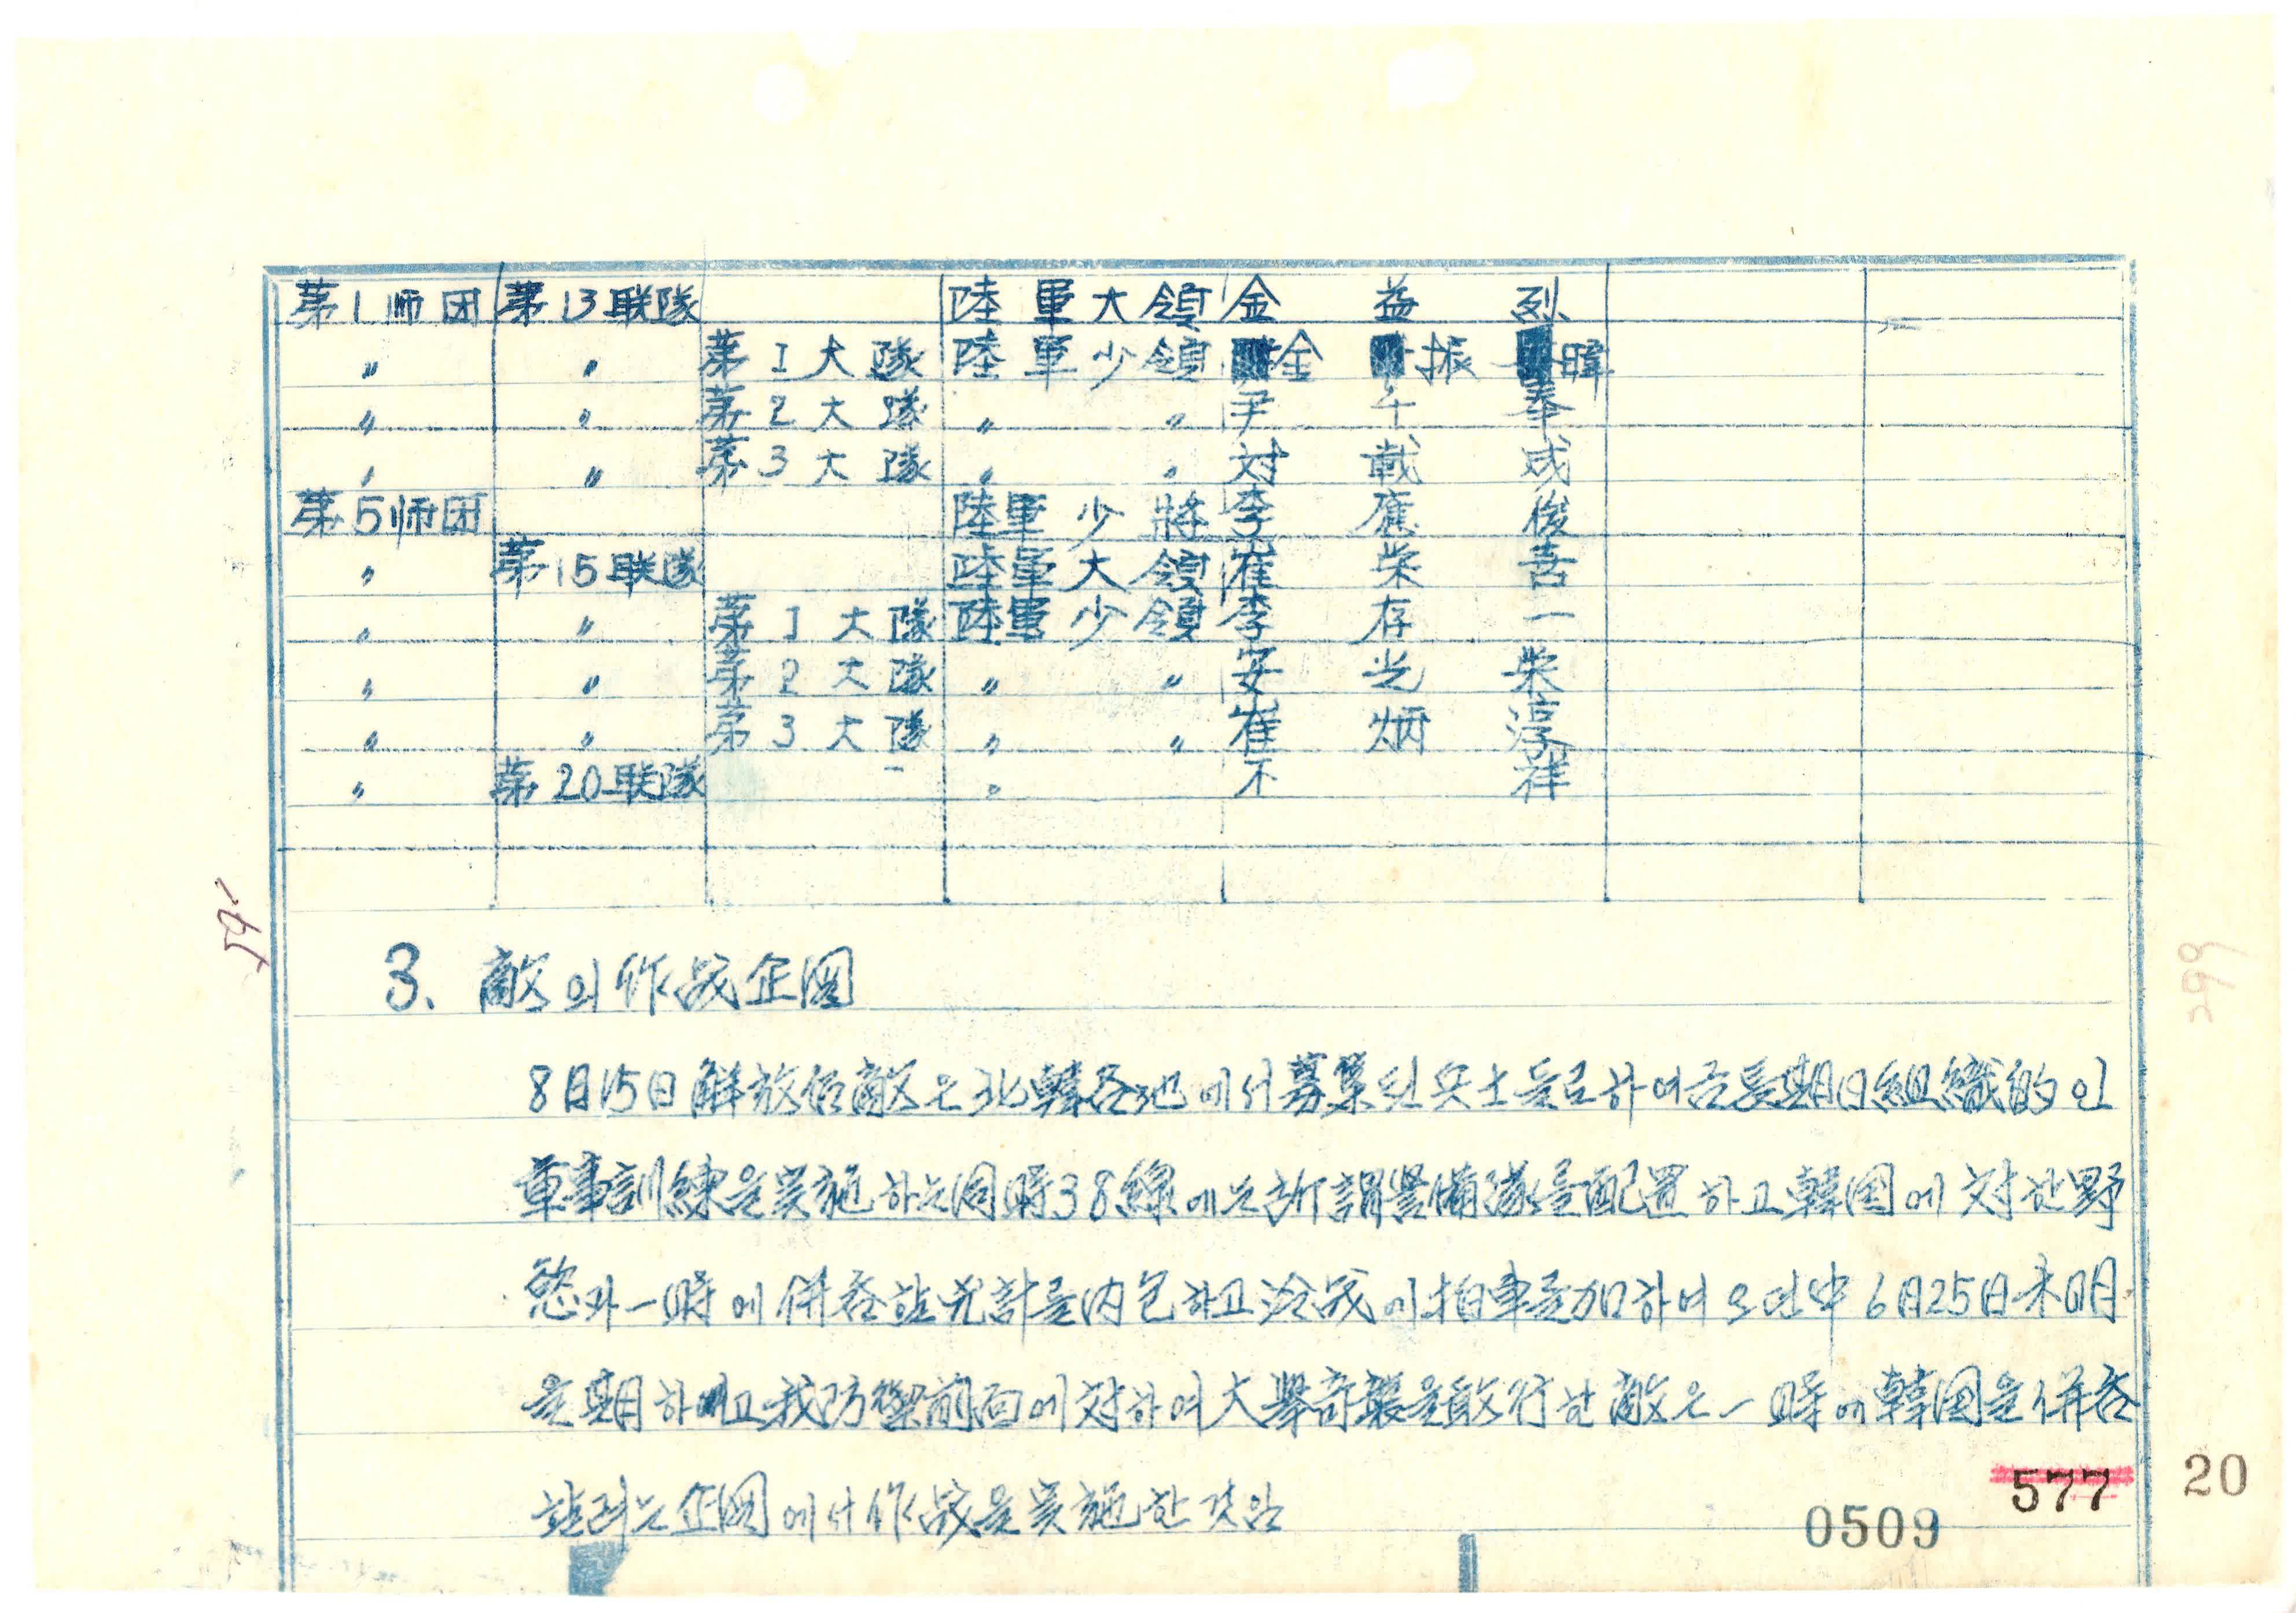 第1师団 第13联隊 陸軍大領 金 益 烈
〃 〃 第1大隊 陸軍少領 金 振 暐
〃 〃 第2大隊 〃 〃 尹 午 奉
〃 〃 第3大隊 〃 〃 対 載 成
第5师団 陸軍少將 李 應 俊
〃 第15联隊 陸軍大領 崔 栄 喜
〃 〃 第1大隊 陸軍少領 李 存 一
〃 〃 第2大隊 〃 〃 安 光 栄
〃 〃 第3大隊 〃 〃 崔 炳 淳
〃 第20联隊 〃 不 祥
3. 敵의 作战企図
8月15日 解放后 敵은 北韓各地에서 募集된 兵士들로하여금 長期的 組織的인
軍事訓練을 実施하는 同時 38線에는 所謂 警備隊를 配置하고 韓国에 対한 野
慾과 一時에 併呑할 凶計를 内包하고 冷战에 拍車를 加하여 오던中 6月25日 未明
을 期하고 我防禦前面에 対하여 大擧奇襲을 敢行한 敵은 一時에 韓国을 併呑
할려는 企図에서 作战을 実施한것임
577
0509
20
299